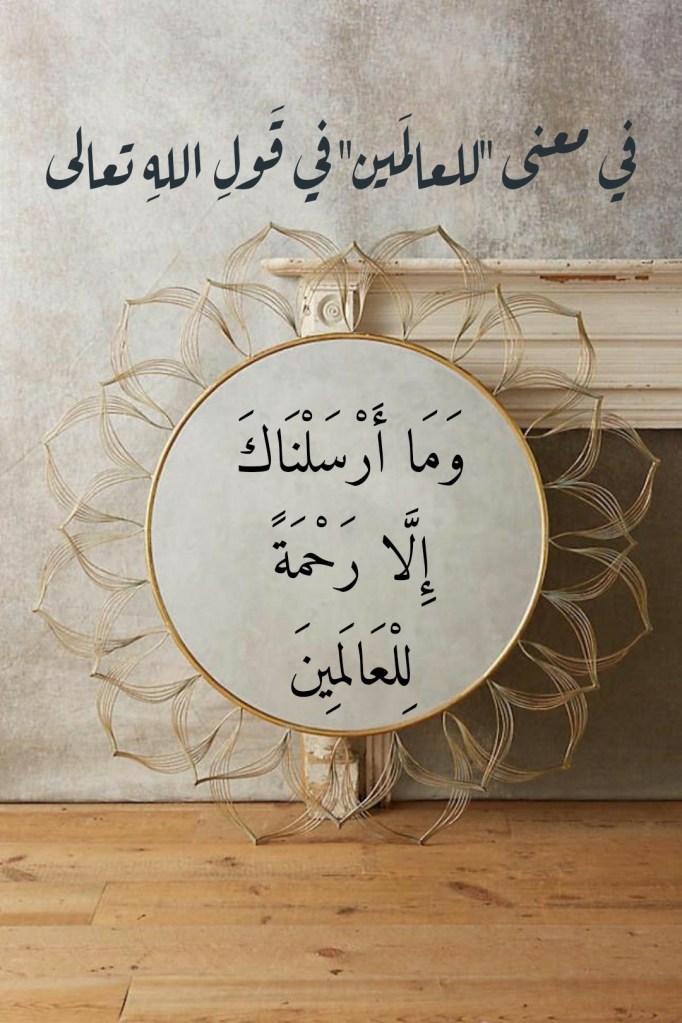 في معنى "للعالَمين" في قَولِ اللهِ تعالى
وَمَا أَرْسَلْنَاكَ
إِلَّا رَحْمَةً
لِلْعَالَمِينَ